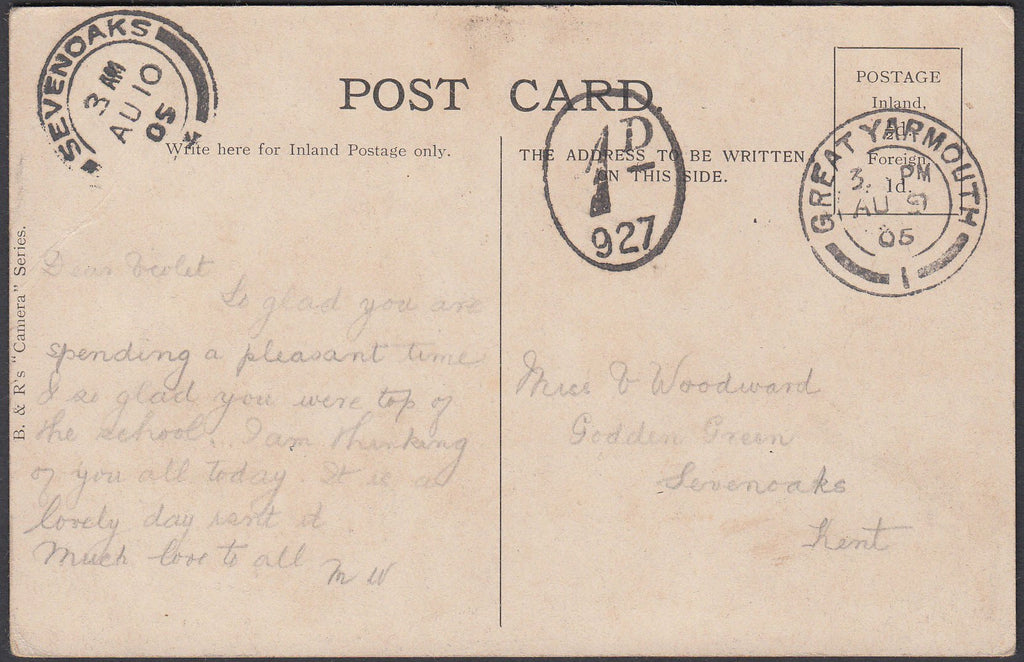 SEVENOAKS
3 AM
AU 10
05
POST CARD.
POSTAGE
Inland,
Foreign,
1d.
GREAT YARMOUTH
3. PM
AU 9
05
1
Write here for Inland Postage only.
THE ADDRESS TO BE WRITTEN
ON THIS SIDE.
1D
927
B. & R's "Camera" Series.
Dear Violet
So glad you are
spending a pleasant time
& so glad you were top of
the school. I am thinking
of you all today. It is a
lovely day isnt it
Much love to all
M W
Miss V Woodward
Godden Green
Sevenoaks
Kent